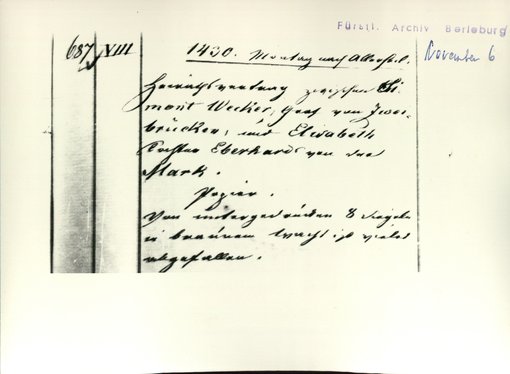 Fürstl. Archiv Berleburg
November 6
687 XIII
1430. Montag nach Allerheil.
Heirathsvertrag zwischen Si-
mont Wecker, Graf von Zwei-
brücken, und Elisabeth
Tochter Eberhards von der
Mark.
Papier.
Von untergedrückten 8 Siegeln
in braunem Wachs ist
abgefallen.